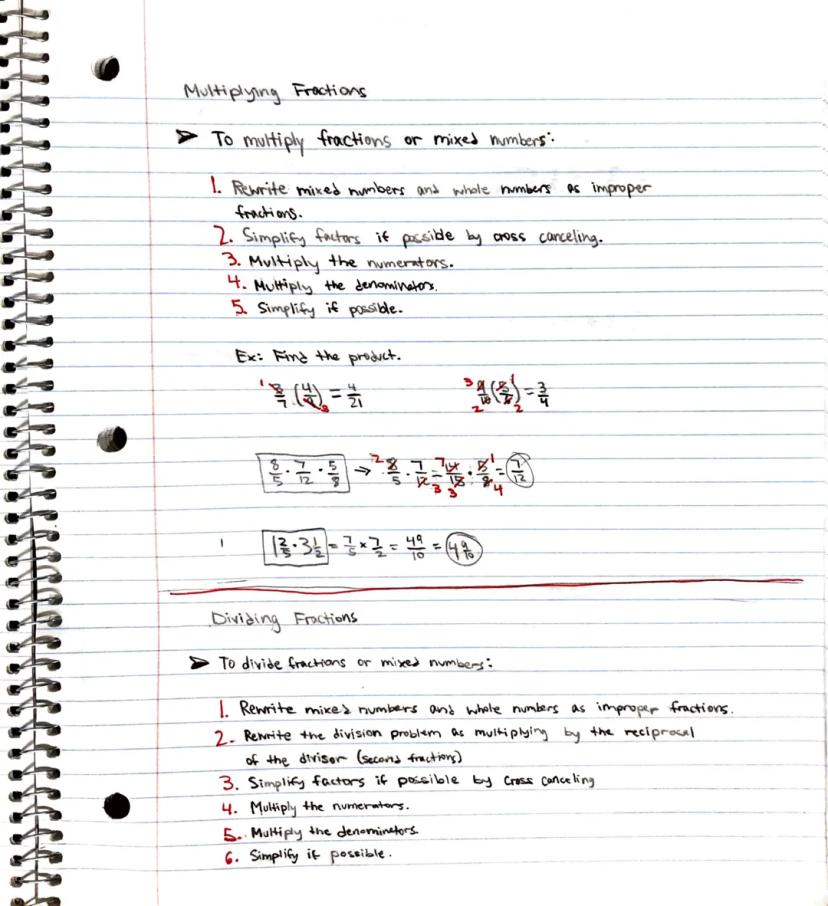 Multiplying Fractions
➤ To multiply fractions or mixed numbers:
1. Rewrite mixed numbers and whole numbers as improper
fractions.
2. Simplify factors if possible by cross canceling.
3. Multiply the numerators.
4. Multiply the denominators.
5. Simplify if possible.
Ex: Find the product.
1 3/7 · (4/9) 3 = 4/21    3 9/10 2 (5/6 1 2) = 3/4
8/5 · 7/12 · 5/8 → 2 8/5 · 7/12 3 = 7 14/15 3 · 5/8 1 4 = 7/12
1 2/5 · 3 1/2 = 7/5 × 7/2 = 49/10 = 4 9/10
Dividing Fractions
➤ To divide fractions or mixed numbers:
1. Rewrite mixed numbers and whole numbers as improper fractions.
2. Rewrite the division problem as multiplying by the reciprocal
of the divisor (second fractions)
3. Simplify factors if possible by cross canceling
4. Multiply the numerators.
5. Multiply the denominators.
6. Simplify if possible.